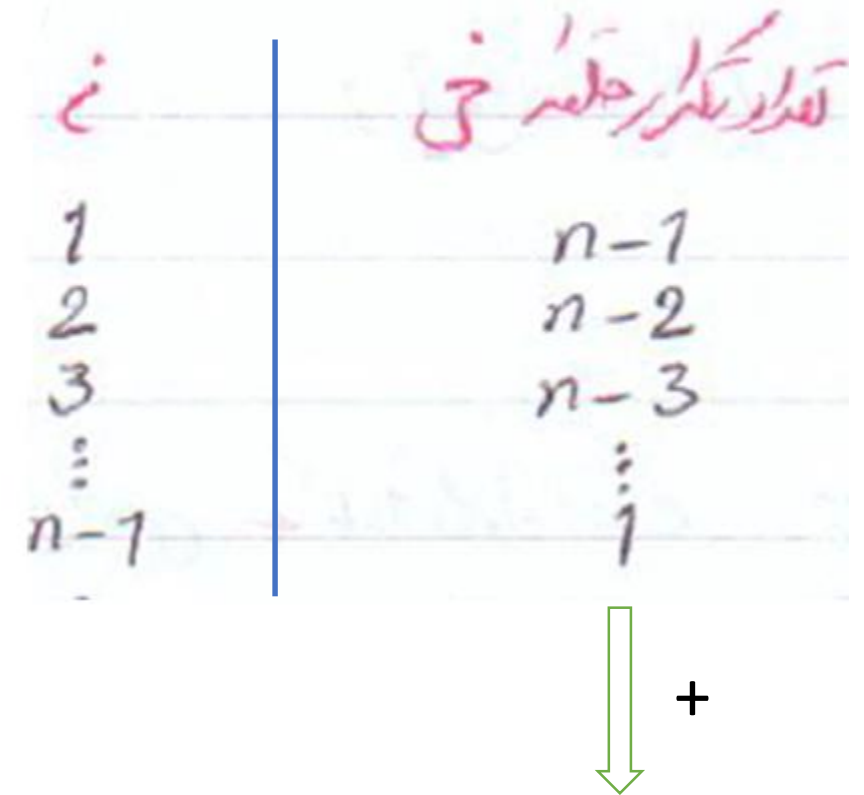 i تعداد تکرار حلقه j
1 n-1
2 n-2
3 n-3
⋮ ⋮
n-1 1
+